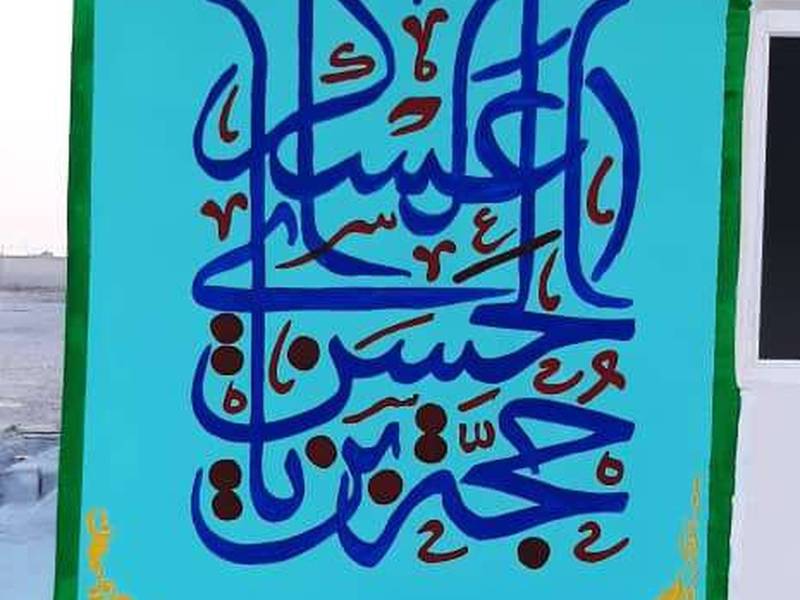 یا حجّة بن
الحسن
العسکری